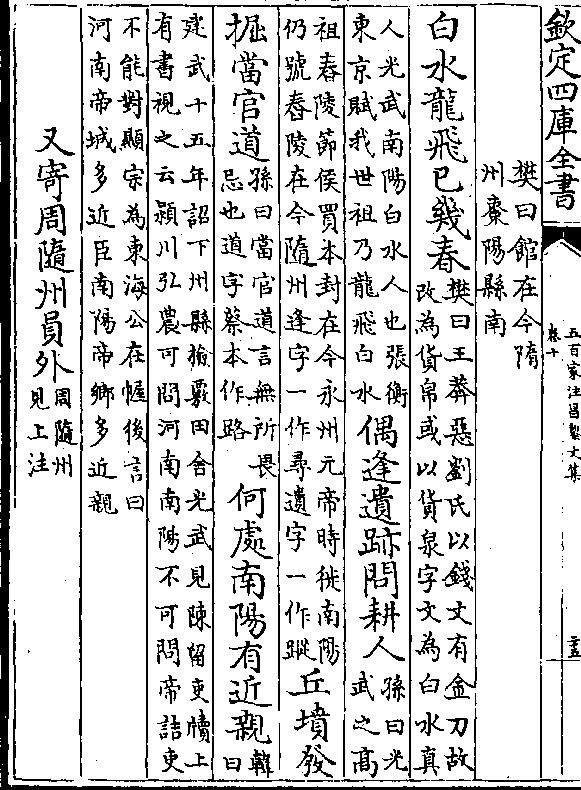 欽定四庫全書
五百家注昌黎文集
卷十
樊曰館在今隋
州棗陽縣南
白水龍飛已幾春
樊曰王莽惡劉氏以錢文有金刀故
改為貨帛或以貨泉字文為白水真
人光武南陽白水人也張衡
東京賦我世祖乃龍飛白水
偶逢遺跡問耕人
孫曰光
武之高
祖舂陵節侯買本封在今永州元帝時徙南陽
仍號舂陵在今隨州逢字一作尋遺字一作蹤
丘墳發
掘當官道
孫曰當官道言無所畏
忌也道字蔡本作路
何處南陽有近親
韓曰
建武十五年詔下州縣檢覈田舍光武見陳留吏牘上
有書視之云潁川弘農可問河南南陽不可問帝詰吏
不能對顯宗為東海公在幄後言曰
河南帝城多近臣南陽帝鄉多近親
又寄周隨州員外
周隨州
見上注